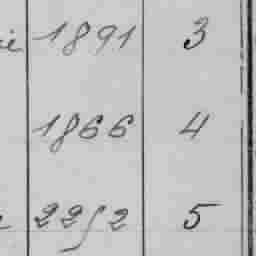 1891 3
1866 4
2252 5